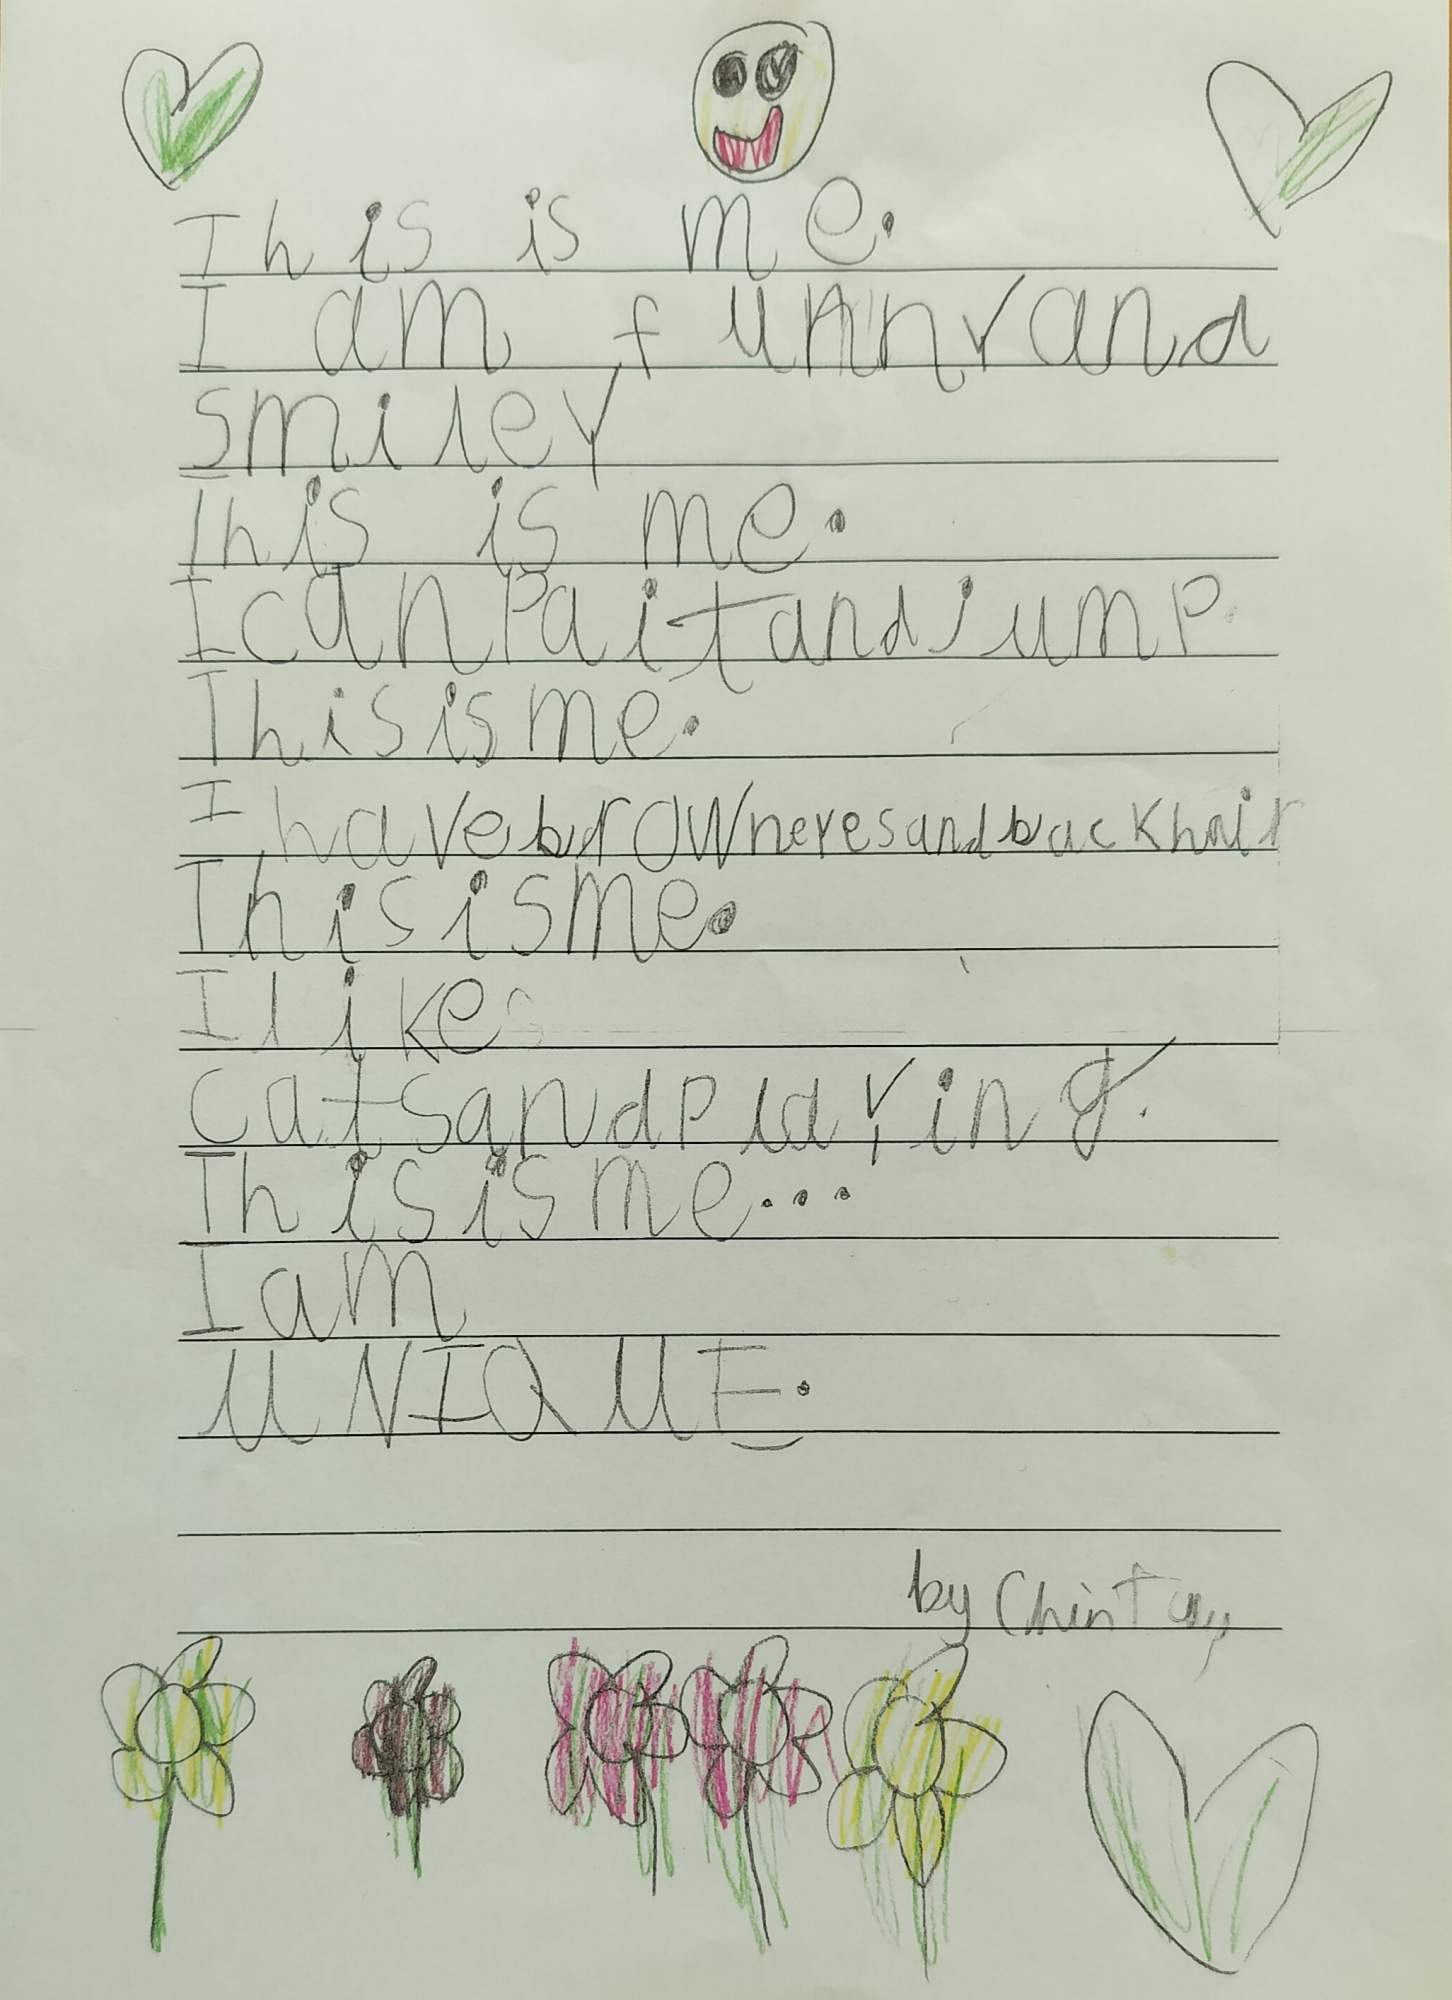 This is me.
I am funny and
smiley
This is me.
I can pait and jump.
This is me.
I have brown eyes and back hair
This is me.
I like
cats and playing.
This is me...
I am
UNIQUE.
by